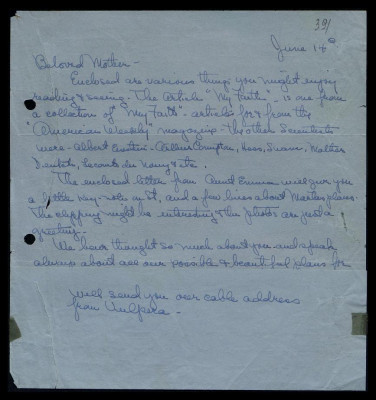 391
June 18
Beloved Mother -
Enclosed are various things you might enjoy
reading & seeing - The article "My Faith" - is one from
a collection of "My Faith" - articles for & from the
"American Weekly" magazine - The other Scientists
were - Albert Einstein - Arthur Compton, Hess, Swann, Walter
Dandy, Lecomte du Nouy & etc.
The enclosed letter from Aunt Emma will give you
a little news of it, and a few lines about plans.
The clipping might be interesting & the photos are just a
greeting -
We have thought so much about you and speak
always about all our possible & beautiful plans for
will send you our cable address
from Vulpera -